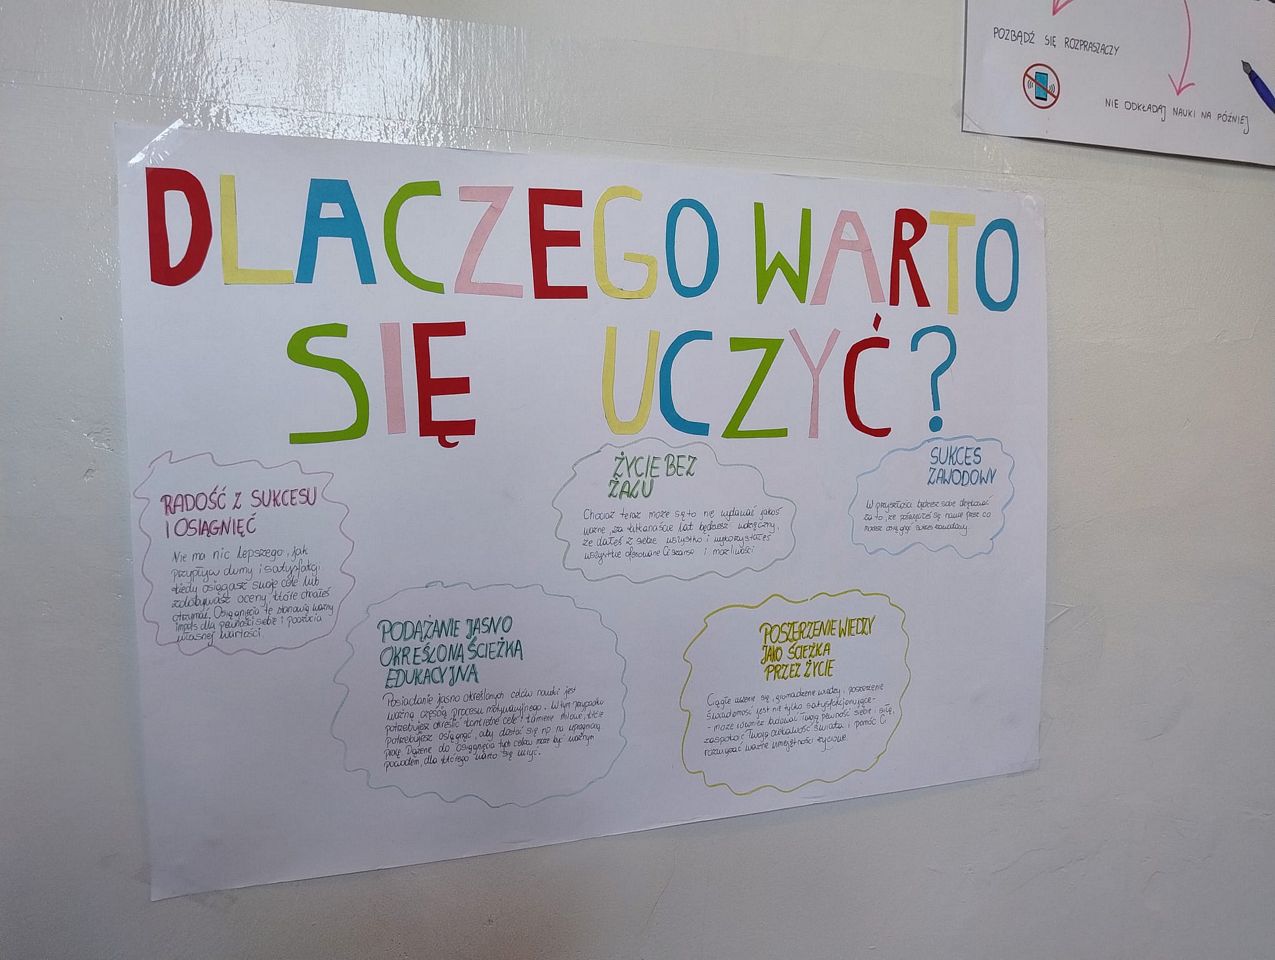 DLACZEGO WARTO
SIĘ UCZYĆ?
RADOŚĆ Z SUKCESU
I OSIĄGNIĘĆ
Nie ma nic lepszego, jak
przypływ dumy i satysfakcji
kiedy osiągasz swoje cele lub
zdobywasz oceny, które chciałeś
otrzymać. Osiągnięcia te stanowią ważny
impuls dla pewności siebie i poczucia
własnej wartości.
ŻYCIE BEZ
ŻALU
Chociaż teraz może się to nie wydawać jakoś
ważne, za kilkanaście lat będziesz wdzięczny,
że dałeś z siebie wszystko i wykorzystałeś
wszystkie oferowane Ci szanse i możliwości
SUKCES
ZAWODOWY
W przyszłości będziesz sobie dziękować
za to, że poświęciłeś się nauce przez co
możesz osiągnąć sukces zawodowy.
PODĄŻANIE JASNO
OKREŚLONĄ ŚCIEŻKĄ
EDUKACYJNĄ
Posiadanie jasno określonych celów nauki jest
ważną częścią procesu motywacyjnego. W tym przypadku
potrzebujesz określić konkretne cele i kamienie milowe, które
potrzebujesz osiągnąć, aby dostać się np. na upragnioną
pracę. Dążenie do osiągnięcia tych celów może być ważnym
powodem, dla którego warto się uczyć.
POSZERZENIE WIEDZY
JAKO ŚCIEŻKA
PRZEZ ŻYCIE
Ciągłe uczenie się, gromadzenie wiedzy, poszerzenie
świadomości jest nie tylko satysfakcjonujące-
- może również budować Twoją pewność siebie i siłę,
zaspokoić Twoją ciekawość świata i pomóc Ci
rozwijać ważne umiejętności życiowe.
POZBĄDŹ SIĘ ROZPRASZACZY
NIE ODKŁADAJ NAUKI NA PÓŹNIEJ